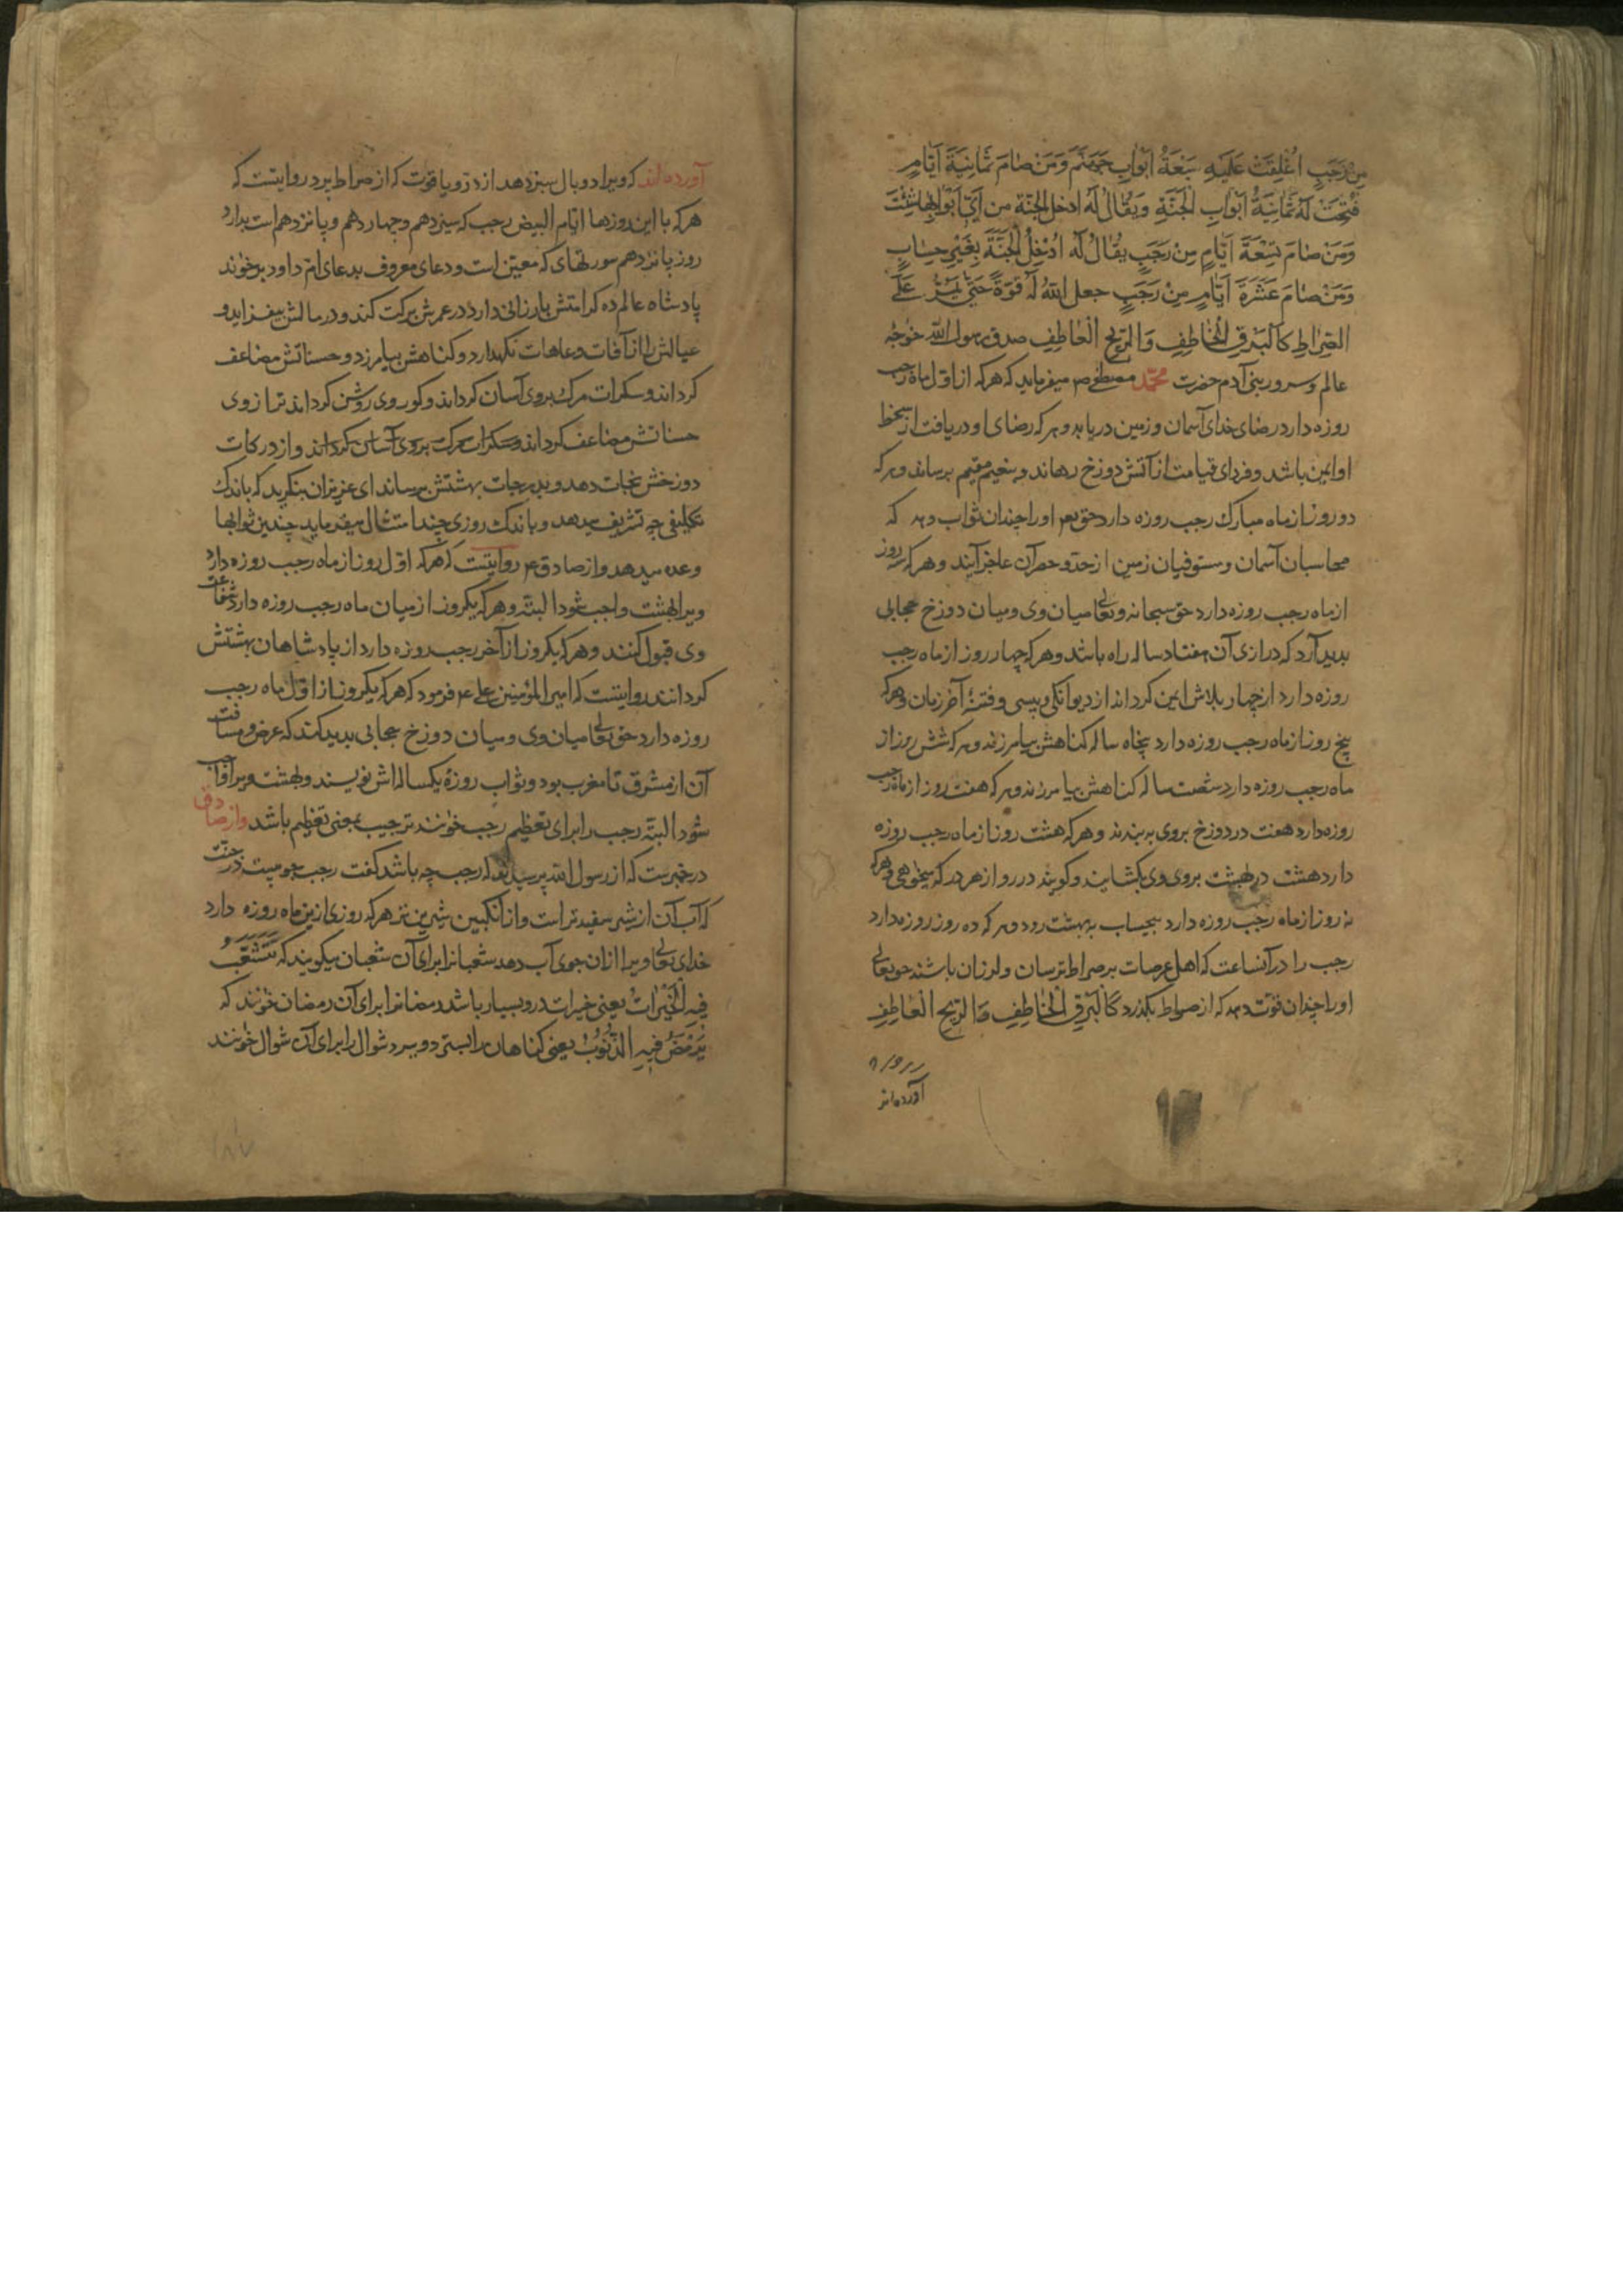 مِنْ رَجَبٍ اُغْلِقَتْ عَلَيْهِ سَبْعَةُ اَبْوٰابِ جَهَنَّمَ وَمَنْ صٰامَ ثَمٰانِيَةَ اَيّٰامٍ
فُتِحَتْ لَهُ ثَمٰانِيَةُ اَبْوٰابِ الْجَنَّةِ وَيُقٰالُ لَهُ ادخل الجنّة من اَيِّ اَبْوٰابِهٰا شِئْتَ
وَمَنْ صٰامَ تِسْعَةَ اَيّٰامٍ مِنْ رَجَبٍ يُقٰالُ لَهُ اُدْخِلُ الْجَنَّةَ بِغَيْرِ حِسٰابٍ
وَمَنْ صٰامَ عَشَرَةَ اَيّٰامٍ مِنْ رَجَبٍ جعل اللّٰهُ لَهُ قُوَةً حَتّٰي يَمُرَّ عَلَي
الصِّرٰاطِ كَالْبَرْقِ الْخٰاطِفِ وَالرّيحِ الْعٰاطِفِ صدق رسول اللّه خوٰجه
عالم و سرور بنی آدم حضرت محمّد مصطفی ص میفرماید که هرکه از اوّل ماه رجب
روزه دارد رضای خدای آسمان و زمین دریابد و هرکه رضای او دریافت از سخط
او ایمن باشد و فردای قیامت از آتش دوزخ رهاند و بنعیم مقیم برساند و هرکه
دو روز از ماه مبارک رجب روزه دارد حق تعم اورا چندان ثواب دهد که
محاسبان آسمان و مستوفیان زمین از حدّ و حصر آن عاجز آیند و هرکه سه روز
از ماه رجب روزه دارد حق سبحانه و تعالی میان وی و میان دوزخ حجابی
بدید آرد که درازی آن هفتاد ساله راه باشد و هرکه چهار روز از ماه رجب
روزه دارد از چهار بلاش ایمن گرداند از دیوانگی و پیسی و فتنۀ آخر زمان و هرکه
پنج روز از ماه رجب روزه دارد پنجاه ساله گناهش بیامرزند و هرکه شش روز از
ماه رجب روزه دارد شصت ساله گناهش بیامرزند و هرکه هفت روز از ماه رجب
روزه دارد هفت در دوزخ بروی ببندند و هرکه هشت روز از ماه رجب روزه
دارد هشت در بهشت بروی وی بکشایند و گویند در رو از هر در که میخوهی و هرکه
نه روز از ماه رجب روزه دارد بیحساب به بهشت رود و هرکه ده روز روزه دارد
رجب را در آنساعت که اهل عرصات بر صراط ترسان و لرزان باشند حق تعالی
اورا چندان قوّت دهد که از صراط بگذرد كَالْبَرْقِ الْخٰاطِفِ وَالرّيحِ الْعٰاطِفِ
آورده اند
آورده اند که ویرا دو بال سبز دهد از درّ و یاقوت که از صراط بپرد روایتست که
هرکه با این روزها ایّام البیض رجب که سیزدهم و چهاردهم و پانزدهم است بدارد
روز پانزدهم سورتهای که معیّن است و دعای معروف بدعای امّ داود برخوند
پادشاه عالم ده کرامتش بارزانی دارد در عمرش برکت کند و در مالش بیفزاید و
عیالش را از آفات و عاهات نگهدارد و گناهش بیامرزد و حسناتش مضاعف
گرداند و سکرات مرگ بروی آسان گرداند و گور وی روشن گرداند ترازوی
حسناتش مضاعف گرداند و سکرات مرگ بروی آسان گرداند و از درکات
دوزخش نجات دهد و بدرجات بهشتش برساند ای عزیزان بنگرید که باندک
تکلیفی چه تشریف میدهد و باندک روزی چند امتثال میفرماید چندین ثوابها
وعده میدهد و از صادق ع روایتست که هرکه اوّل روز از ماه رجب روزه دارد
ویرا بهشت واجب شود البتّه و هرکه یکروز از میان ماه رجب روزه دارد شفاعت
وی قبول کنند و هرکه یکروز از آخر رجب روزه دارد از پادشاهان بهشتش
گردانند روایتست که امیرالمؤمنین علی ع فرمود که هرکه یکروز از اوّل ماه رجب
روزه دارد حق تعالی میان وی و میان دوزخ حجابی بدید کند که عرض و مسافت
آن از مشرق تا مغرب بود و ثواب روزۀ یکساله اش نویسند و بهشت ویرا واجب
شود البتّه رجب را برای تعظیم رجب خونند ترجیب بمعنی تعظیم باشد و از صادق
در خبرست که از رسول الله پرسیدند که رجب چه باشد گفت رجب جویست در جنّت
که آب آن از شیر سفیدتر است و از انگبین شیرین تر هرکه روزی ازین ماه روزه دارد
خدای تعالی ویرا از ان جوی آب دهد شعبانرا برای آن شعبان میگویند که تَتَشَعَّبُ
فيهِ الْخَيْرٰاتُ یعنی خیرات درو بسیار باشد رمضانرا برای آن رمضان خونند که
يَرْمَضُ فيهِ الذُّنُوبُ یعنی گناهان را بستردو ببرد شوال را برای آن شوال خونند
۱۸۷